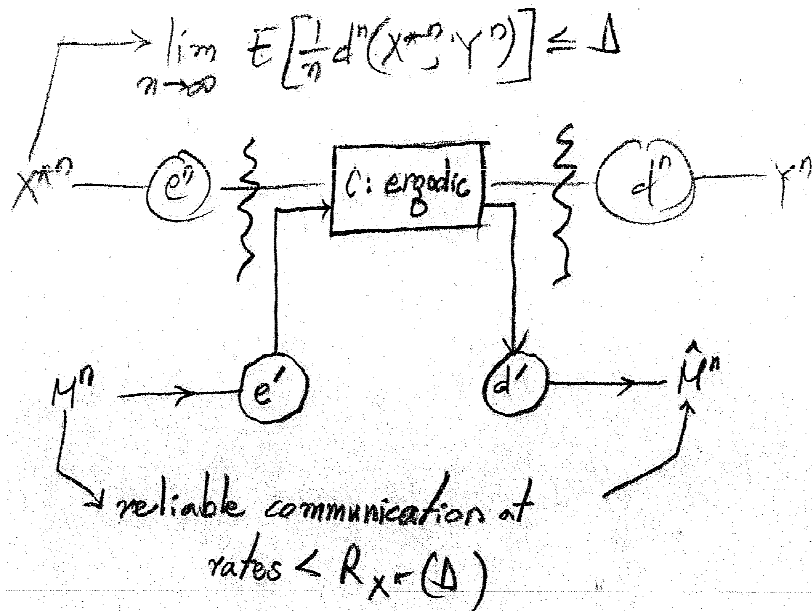 lim E[1/n dⁿ(X*ⁿ, Yⁿ)] ≤ Δ
n→∞
X*ⁿ eⁿ C: ergodic dⁿ Yⁿ
Mⁿ e′ d′ M̂ⁿ
reliable communication at
rates < R_X*(Δ)